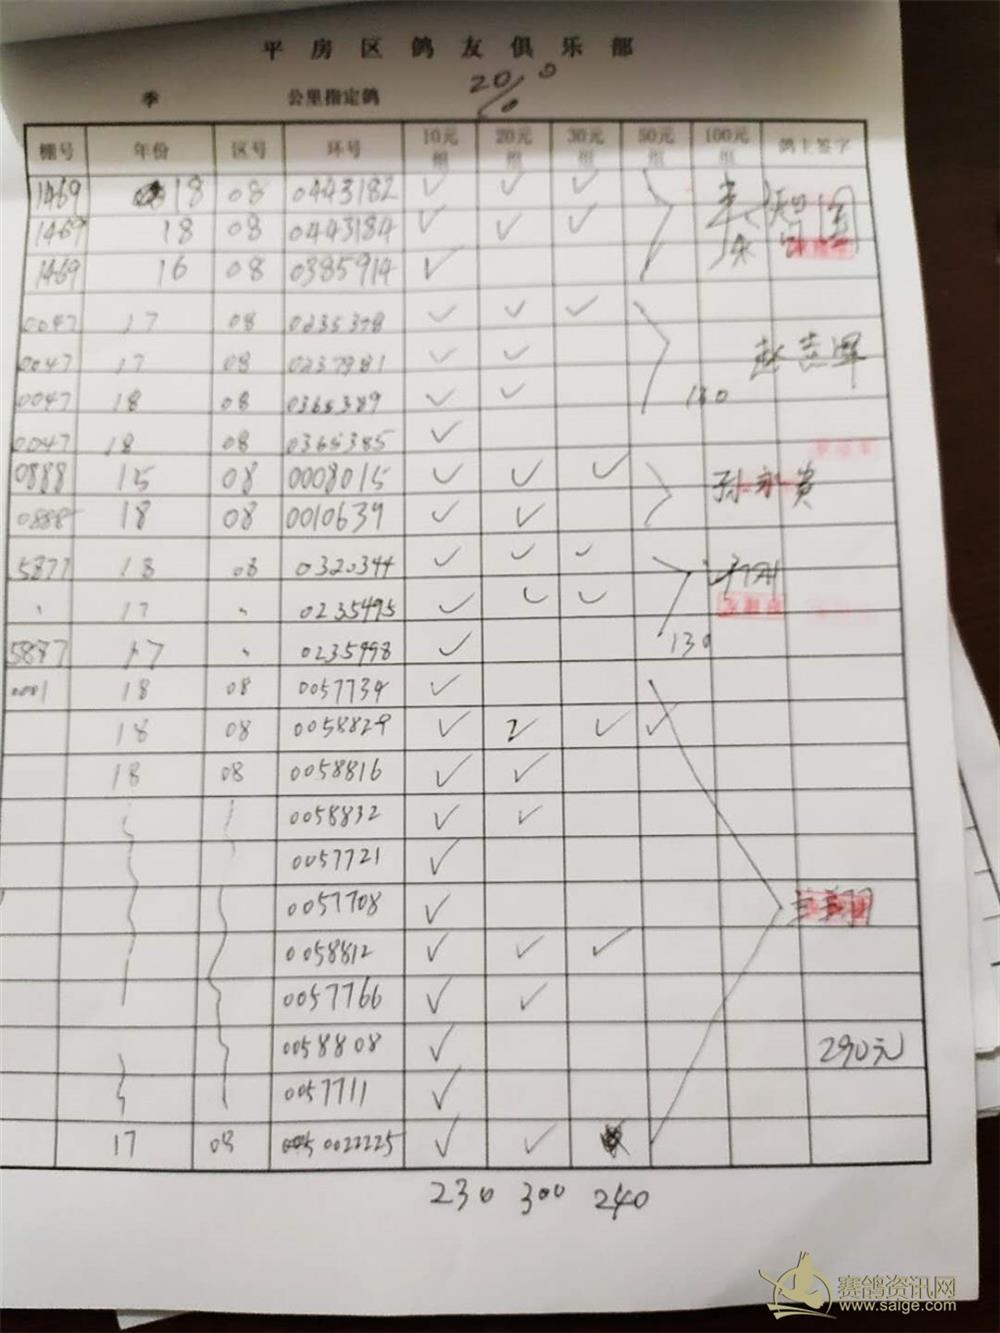 平房区鸽友俱乐部
季 公里指定鸽 20%
棚号 年份 区号 环号 10元组 20元组 30元组 50元组 100元组 鸽主签字
1469 18 08 0443182 ✓ ✓ ✓
1469 18 08 0443184 ✓ ✓ ✓
1469 16 08 0385914 ✓
0047 17 08 0235378 ✓ ✓ ✓
0047 17 08 0237981 ✓ ✓
0047 18 08 0365389 ✓ ✓ 130
0047 18 08 0365385 ✓
0888 15 08 0008015 ✓ ✓ ✓ 孙永贵
0888 18 08 0010639 ✓ ✓
5877 18 08 0320344 ✓ ✓ ✓
17 0235495 ✓ ✓ ✓
5877 17 0235998 ✓ 130
0001 18 08 0057734 ✓
18 08 0058829 ✓ 2 ✓ ✓
18 08 0058816 ✓ ✓
0058832 ✓ ✓
0057721 ✓
0057708 ✓
0058812 ✓ ✓ ✓
0057766 ✓ ✓
0058808 ✓ 290元
0057711 ✓
17 08 0022225 ✓ ✓
230 300 240
赛鸽资讯网
www.saige.com